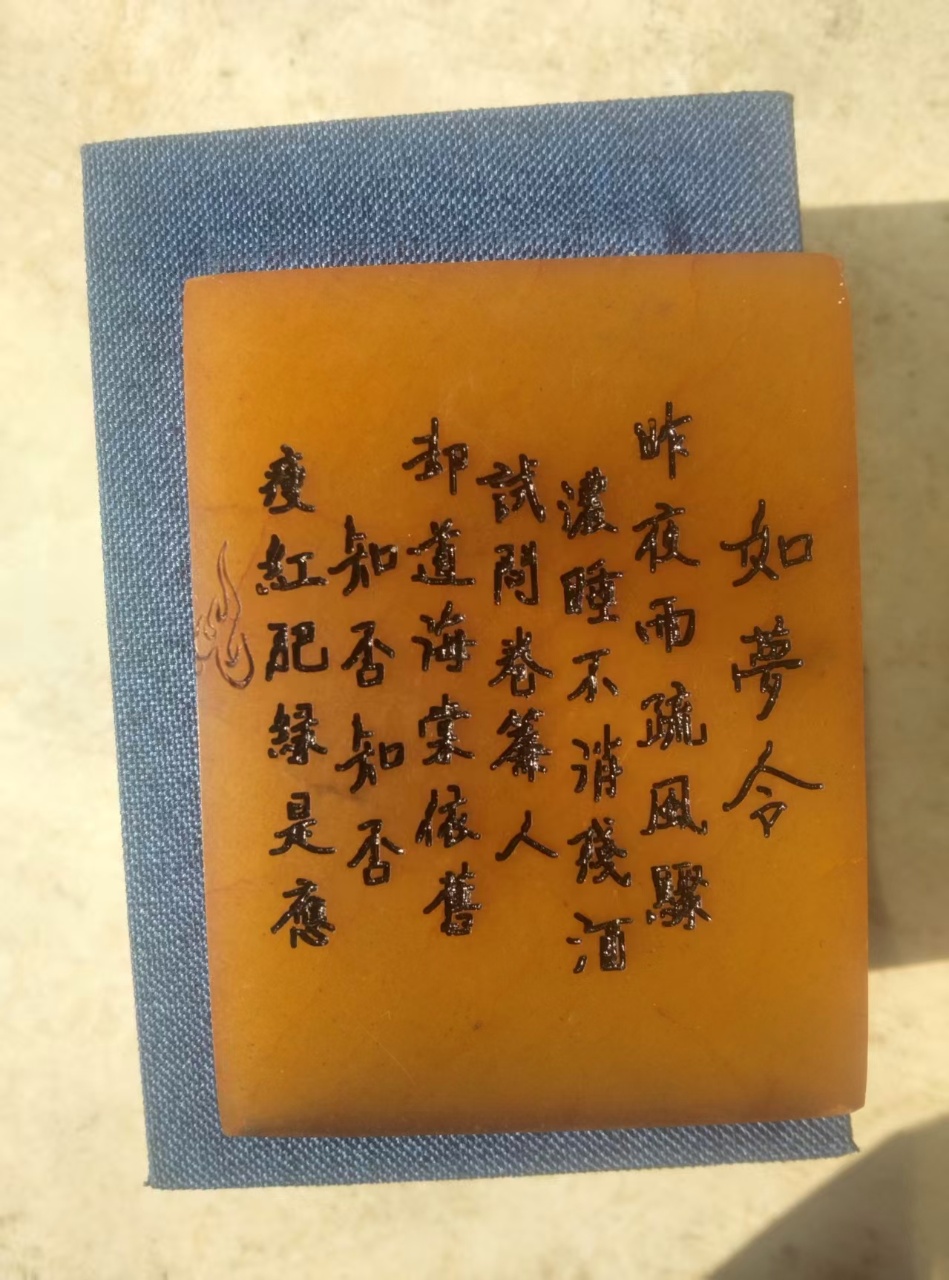 如夢令
昨夜雨疏风驟
濃睡不消殘酒
試問卷簾人
却道海棠依舊
知否知否
瘦紅肥緑是應